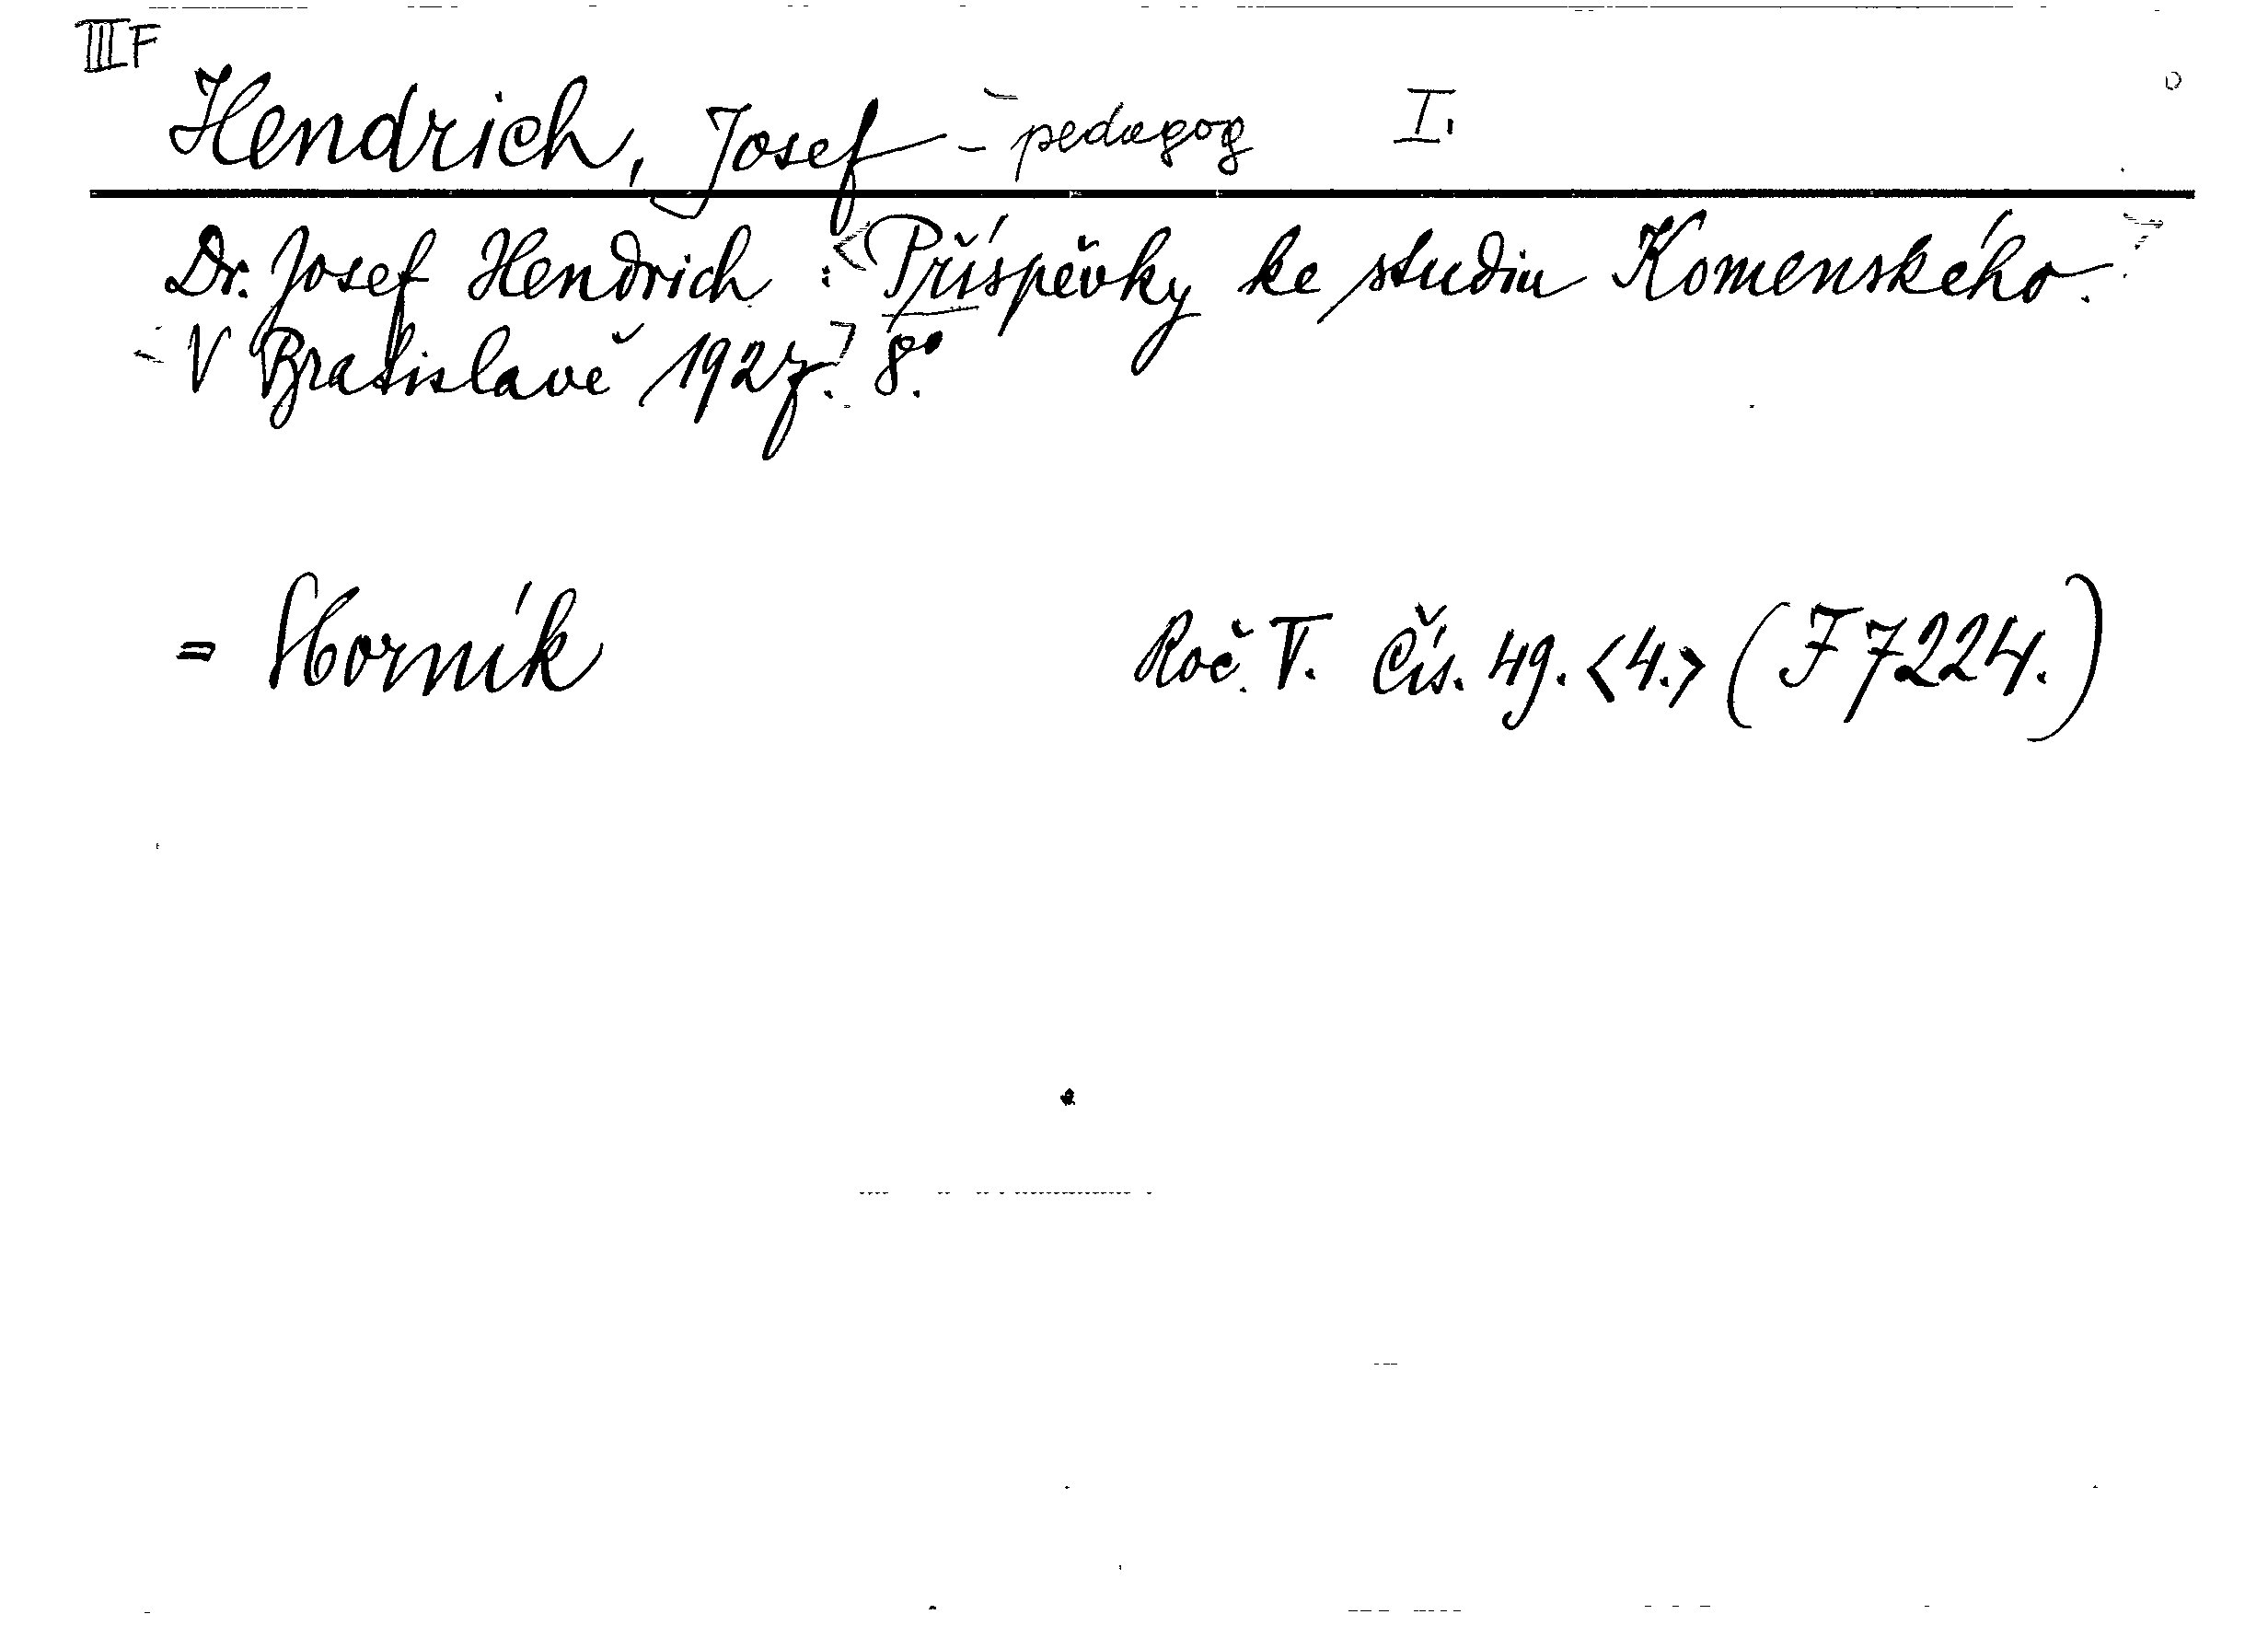 III F
Hendrich, Josef - pedagog I.
Dr. Josef Hendrich : <Příspěvky ke studiu Komenského.>
V Bratislavě 1927. 8°.
= Sborník Roč. V. Čís. 49. <4.> (F 7224.)